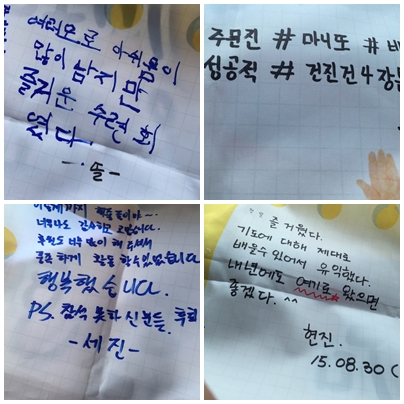 여러모로 아쉬움이
많이 남지만
즐거운 수련회
였다.
- 똘 -
주문진 # 마니또 #
성공적 # 건진건 4강
이렇게까지
너무나도 감사하고 고맙습니다.
후원도 너무 많이 해 주셔서
풍족하게 활동 할수있었습니다
행복했습니다.
PS. 참석 못하신분들. 후회
- 세진 -
즐거웠다.
기도에 대해 제대로
배울수 있어서 유익했다.
내년에도 여기로 왔으면
좋겠다. ^^
현진.
15.08.30 (